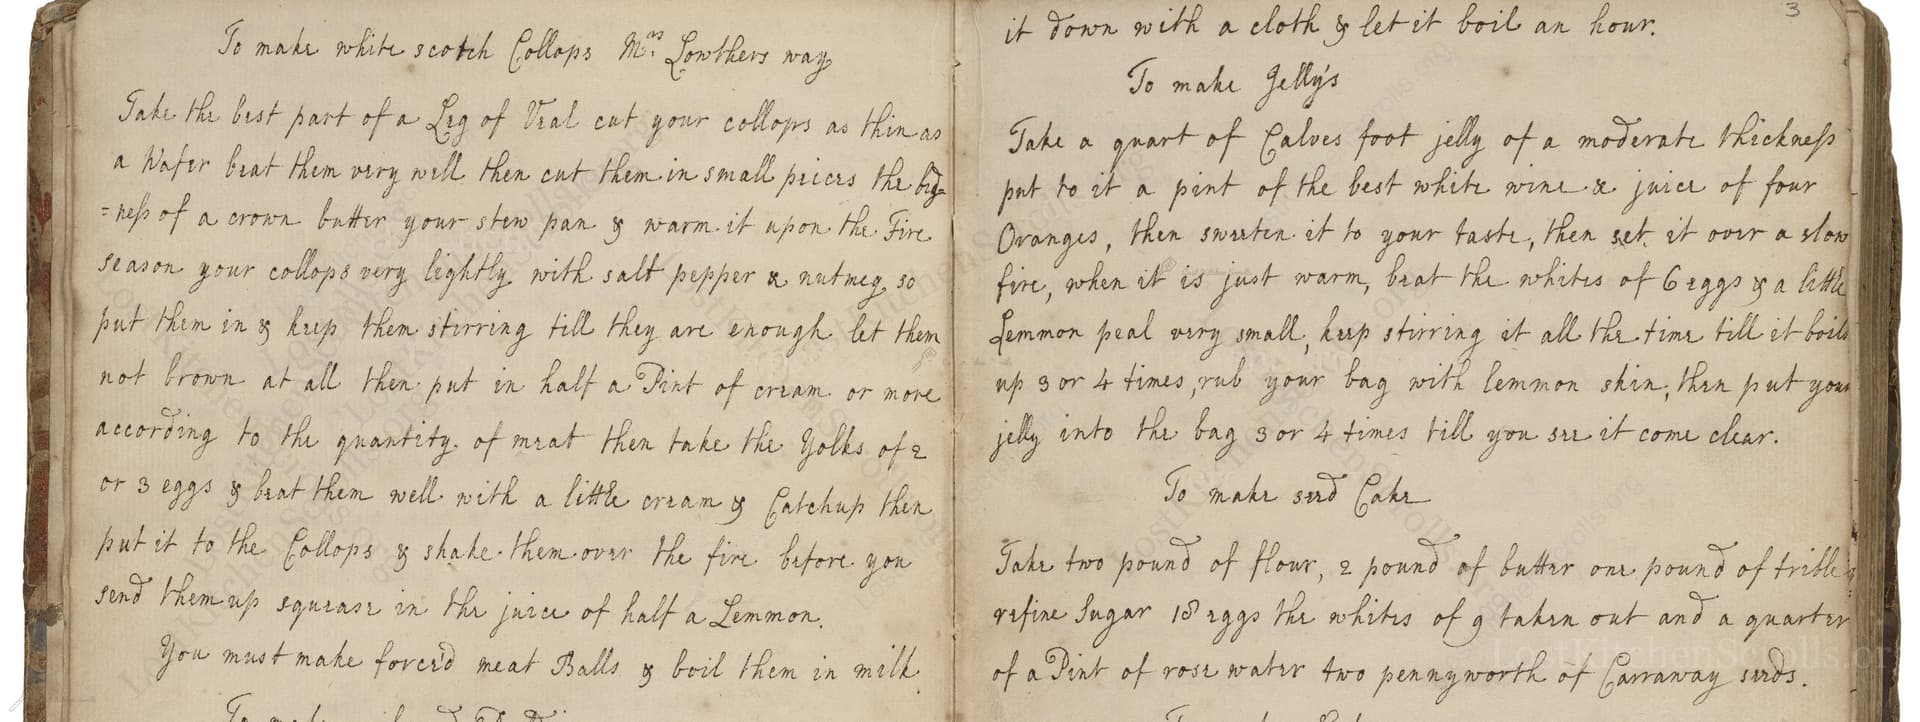 To make white scotch Collops Mrs Lowthers way
Take the best part of a Leg of Veal cut your collops as thin as
a Wafer beat them very well then cut them in small peices the big=
=ness of a crown butter your stew pan & warm it upon the Fire
season your collops very lightly with salt pepper & nutmeg so
put them in & keep them stirring till they are enough let them
not brown at all then put in half a Pint of cream or more
according to the quantity of meat then take the Yolks of 2
or 3 eggs & beat them well with a little cream & Catchup then
put it to the Collops & shake them over the fire before you
send them up squease in the juice of half a Lemmon.
You must make force'd meat Balls & boil them in milk
To make
3
it down with a cloth & let it boil an hour.
To make Jelly's
Take a quart of Calves foot jelly of a moderate thickness
put to it a pint of the best white wine & juice of four
Oranges, then sweeten it to your taste, then set it over a slow
fire, when it is just warm, beat the whites of 6 eggs & a little
Lemmon peal very small, keep stirring it all the time till it boils
up 3 or 4 times, rub your bag with lemmon skin, then put your
jelly into the bag 3 or 4 times till you see it come clear.
To make seed Cake
Take two pound of flour, 2 pound of butter one pound of trible
refine Sugar 18 eggs the whites of 9 taken out and a quarter
of a Pint of rose water two pennyworth of Carraway seeds.
LostKitchenScrolls.org